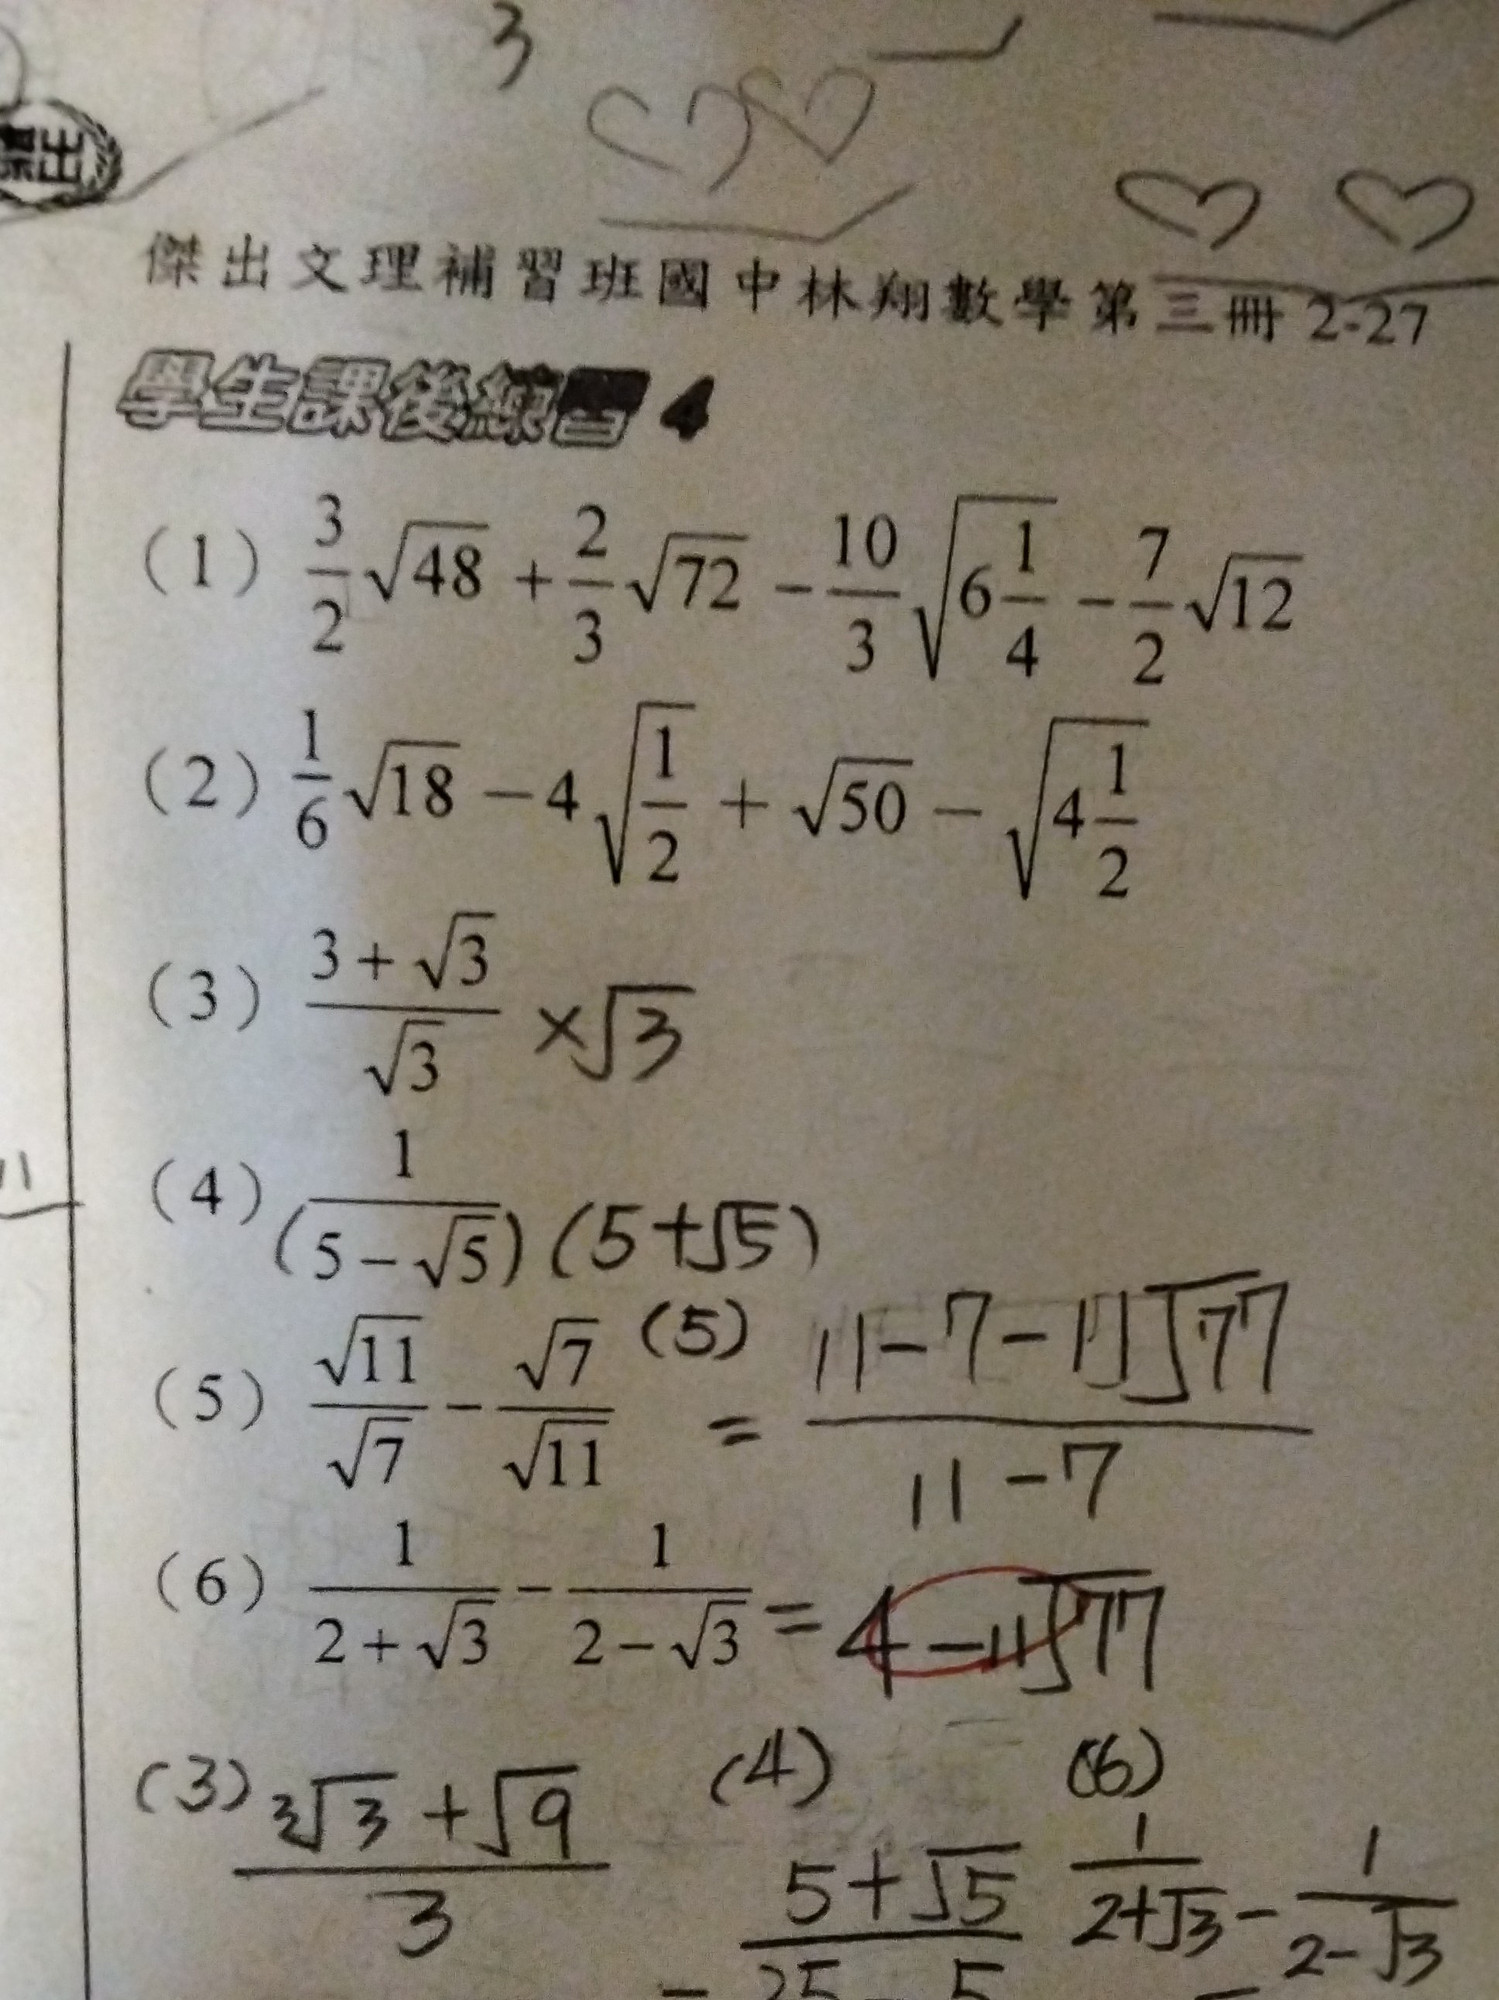 3
傑出
傑出文理補習班國中林翔數學第三冊 2-27
學生課後練習 4
(1) 3/2 √48 + 2/3 √72 - 10/3 √(6 1/4) - 7/2 √12
(2) 1/6 √18 - 4 √(1/2) + √50 - √(4 1/2)
(3) (3+√3)/√3 ×√3
(4) 1/(5-√5) (5+√5)
(5) √11/√7 - √7/√11
(5) = (11-7-11√77)/(11-7)
(6) 1/(2+√3) - 1/(2-√3)
= 4-11√77
11
(3) (3√3+√9)/3
(4) (5+√5)/(25-5)
(6) 1/(2+√3) - 1/(2-√3)